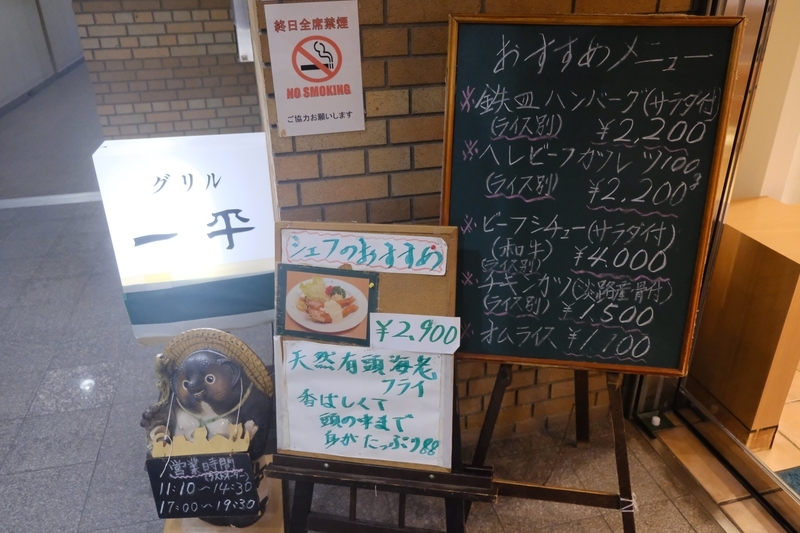 終日全席禁煙
NO SMOKING
ご協力お願いします
グリル
一平
シェフのおすすめ
¥2,900
天然有頭海老
フライ
香ばしくて
頭の中まで
身がたっぷり
営業時間
11:10〜14:30
17:00〜19:30
おすすめメニュー
※鉄皿ハンバーグ(サラダ付)
(ライス別) ¥2,200
※ヘレビーフカツレツ100g
(ライス別) ¥2,200
※ビーフシチュー(サラダ付)
(和牛) ¥4,000
(ライス別)
※チキンカツ(淡路産骨付)
(ライス別) ¥1,500
※オムライス ¥1,100